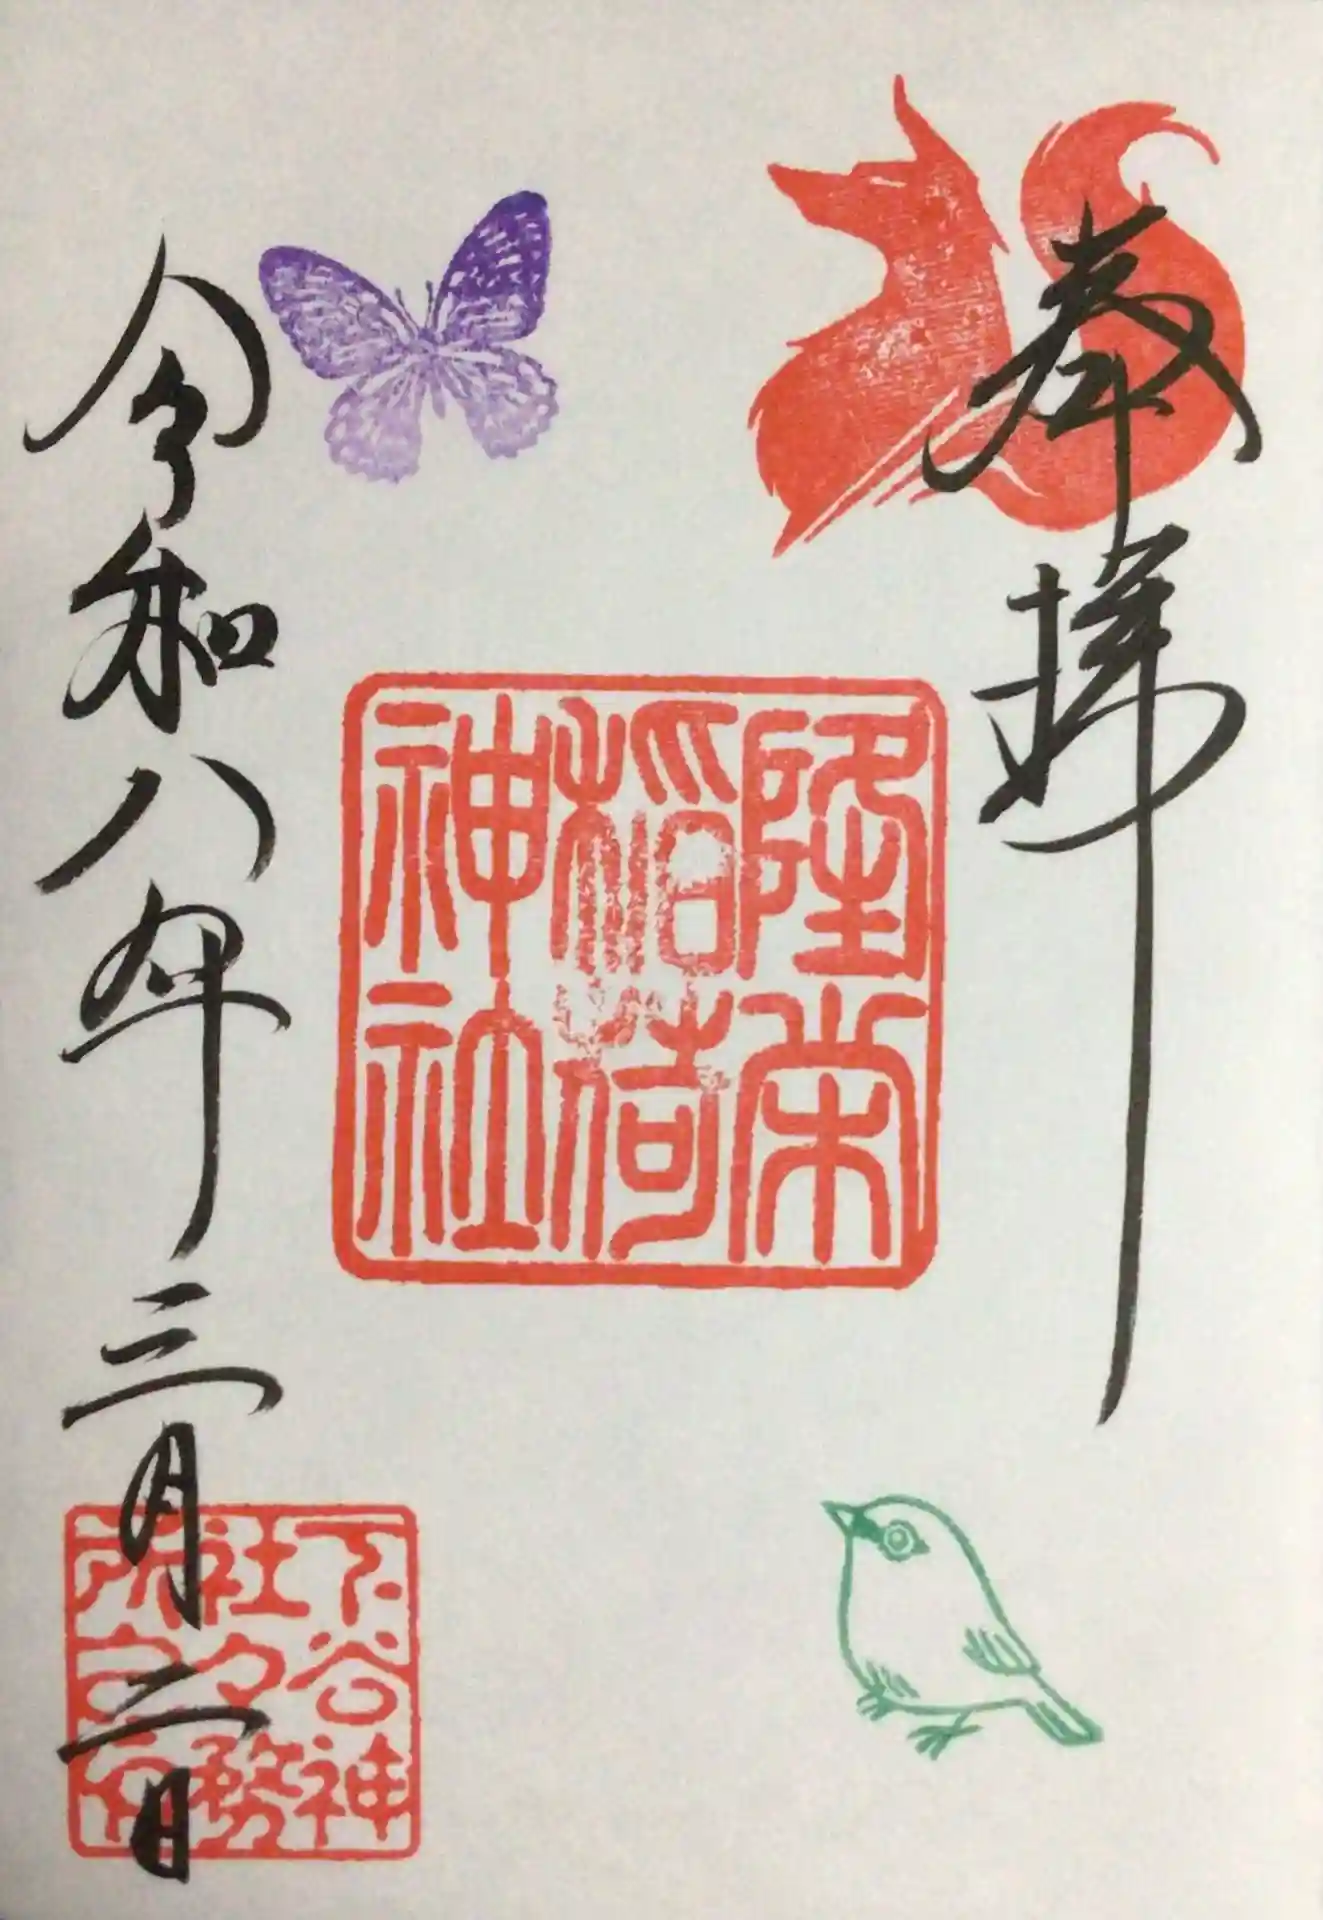 奉拝
隆栄
稲荷
神社
令和八年三月二日
下谷神
社々務
所之印